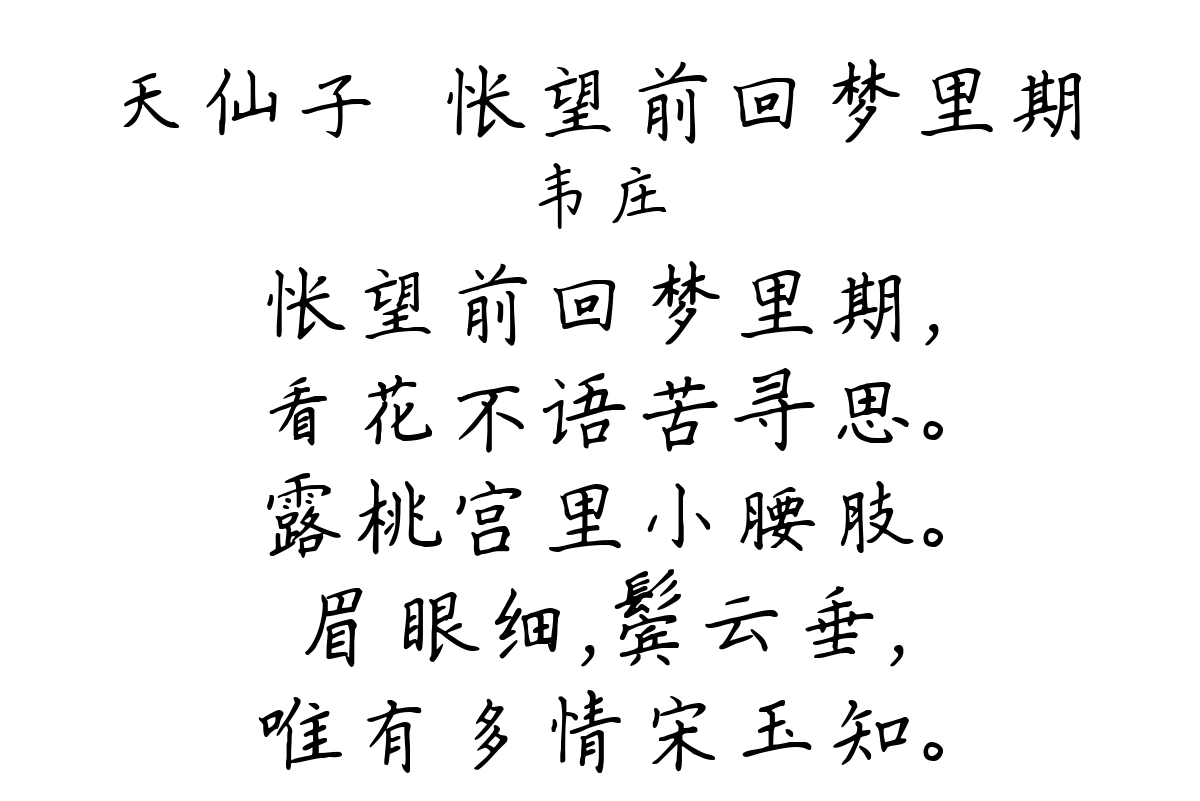 天仙子 怅望前回梦里期
韦庄
怅望前回梦里期,
看花不语苦寻思。
露桃宫里小腰肢。
眉眼细,鬓云垂,
唯有多情宋玉知。